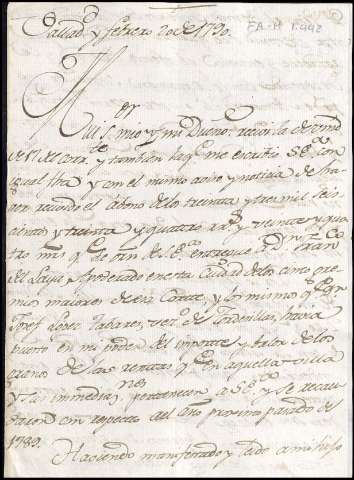 Vallad. y febrero 20 de 1790.
FA-M
Mui s. mio y mi Dueño: recivi la de vmd
de 17 del corr.te y tambien la q.e me escribio S.E. con
igual fha y con el mismo aviso y noticia de ha-
ver recivido el abono de los treinta y tres mil seis
cientos y treinta y quatro r.s y veinte y qua-
tro mrs q.e de orn de S.E. entregue à D.n
el Apoderado en esta Ciudad de los cinco gre-
mios maiores de esa Corte, y los mismos q.e
Josef Lopez Tabares, vez.o de Tordesillas, havia
puesto en mi poder del importe y valor de los
granos de las rentas q.e en aquella villa
y las inmediaz.nes pertenecen a S.E. y se recau-
daron con respecto al año proximo pasado de
1789.
Haviendo manifestado y leido a mi hijo